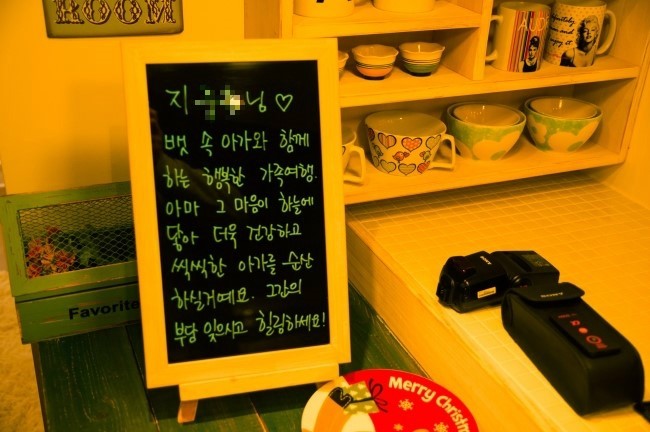 ROOM
지 님 ♡
뱃 속 아가와 함께
하는 행복한 가족여행.
아마 그 마음이 하늘에
닿아 더욱 건강하고
씩씩한 아가를 순산
하실거예요. 그간의
부담 잊으시고 힐링하세요!
Favorite
Merry Christm
SONY